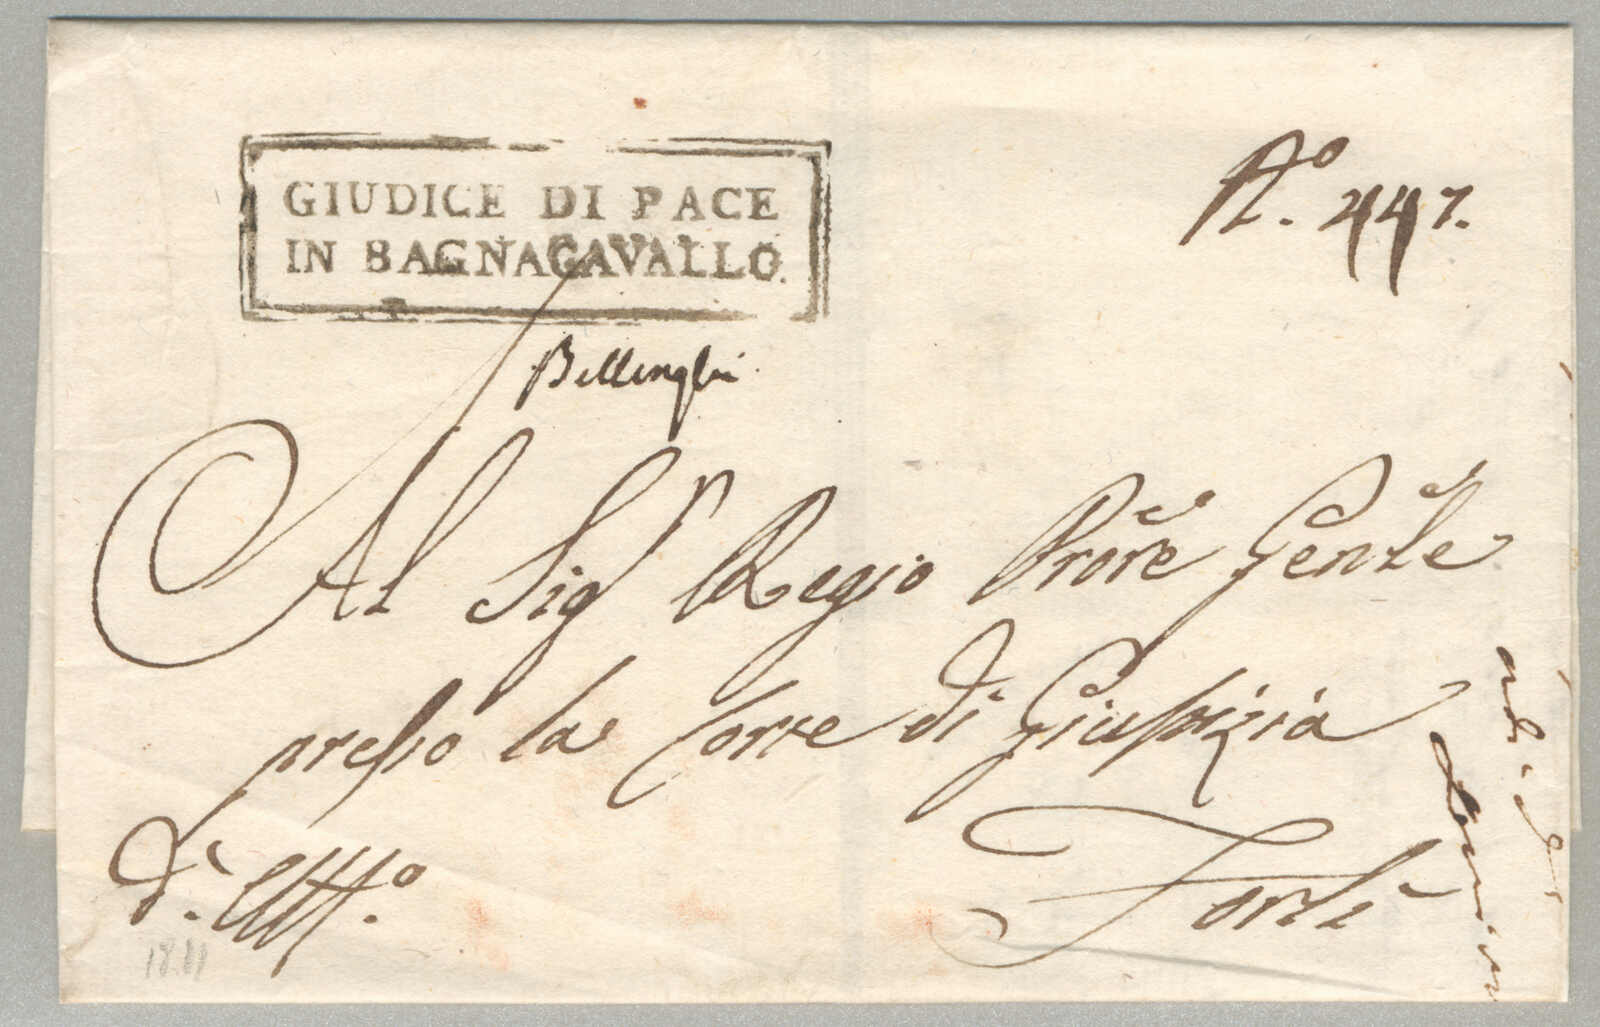 GIUDICE DI PACE
IN BAGNACAVALLO.
N.º 447.
Bellenghi
Al Sigr Regio Prore Genle
presso la Corte di Giustizia
d'Uff.º
Forlì
1811